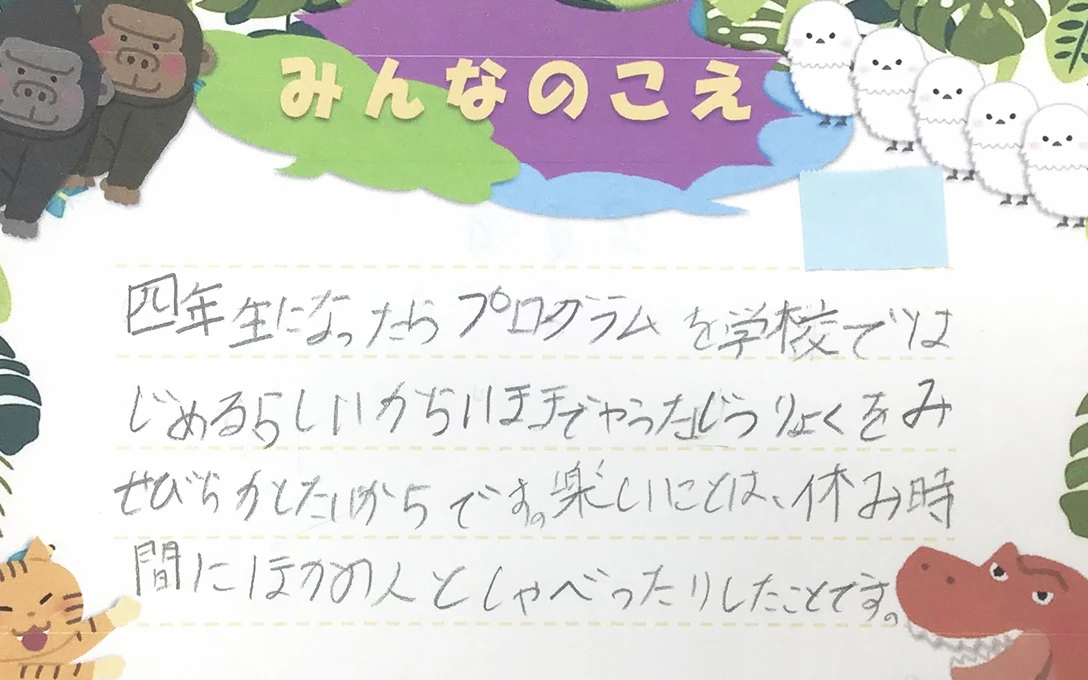 みんなのこえ
四年生になったらプログラムを学校では
じめるらしいからいままでやったじつりょくをみ
せびらかしたいからです。楽しいことは、休み時
間にほかの人としゃべったりしたことです。